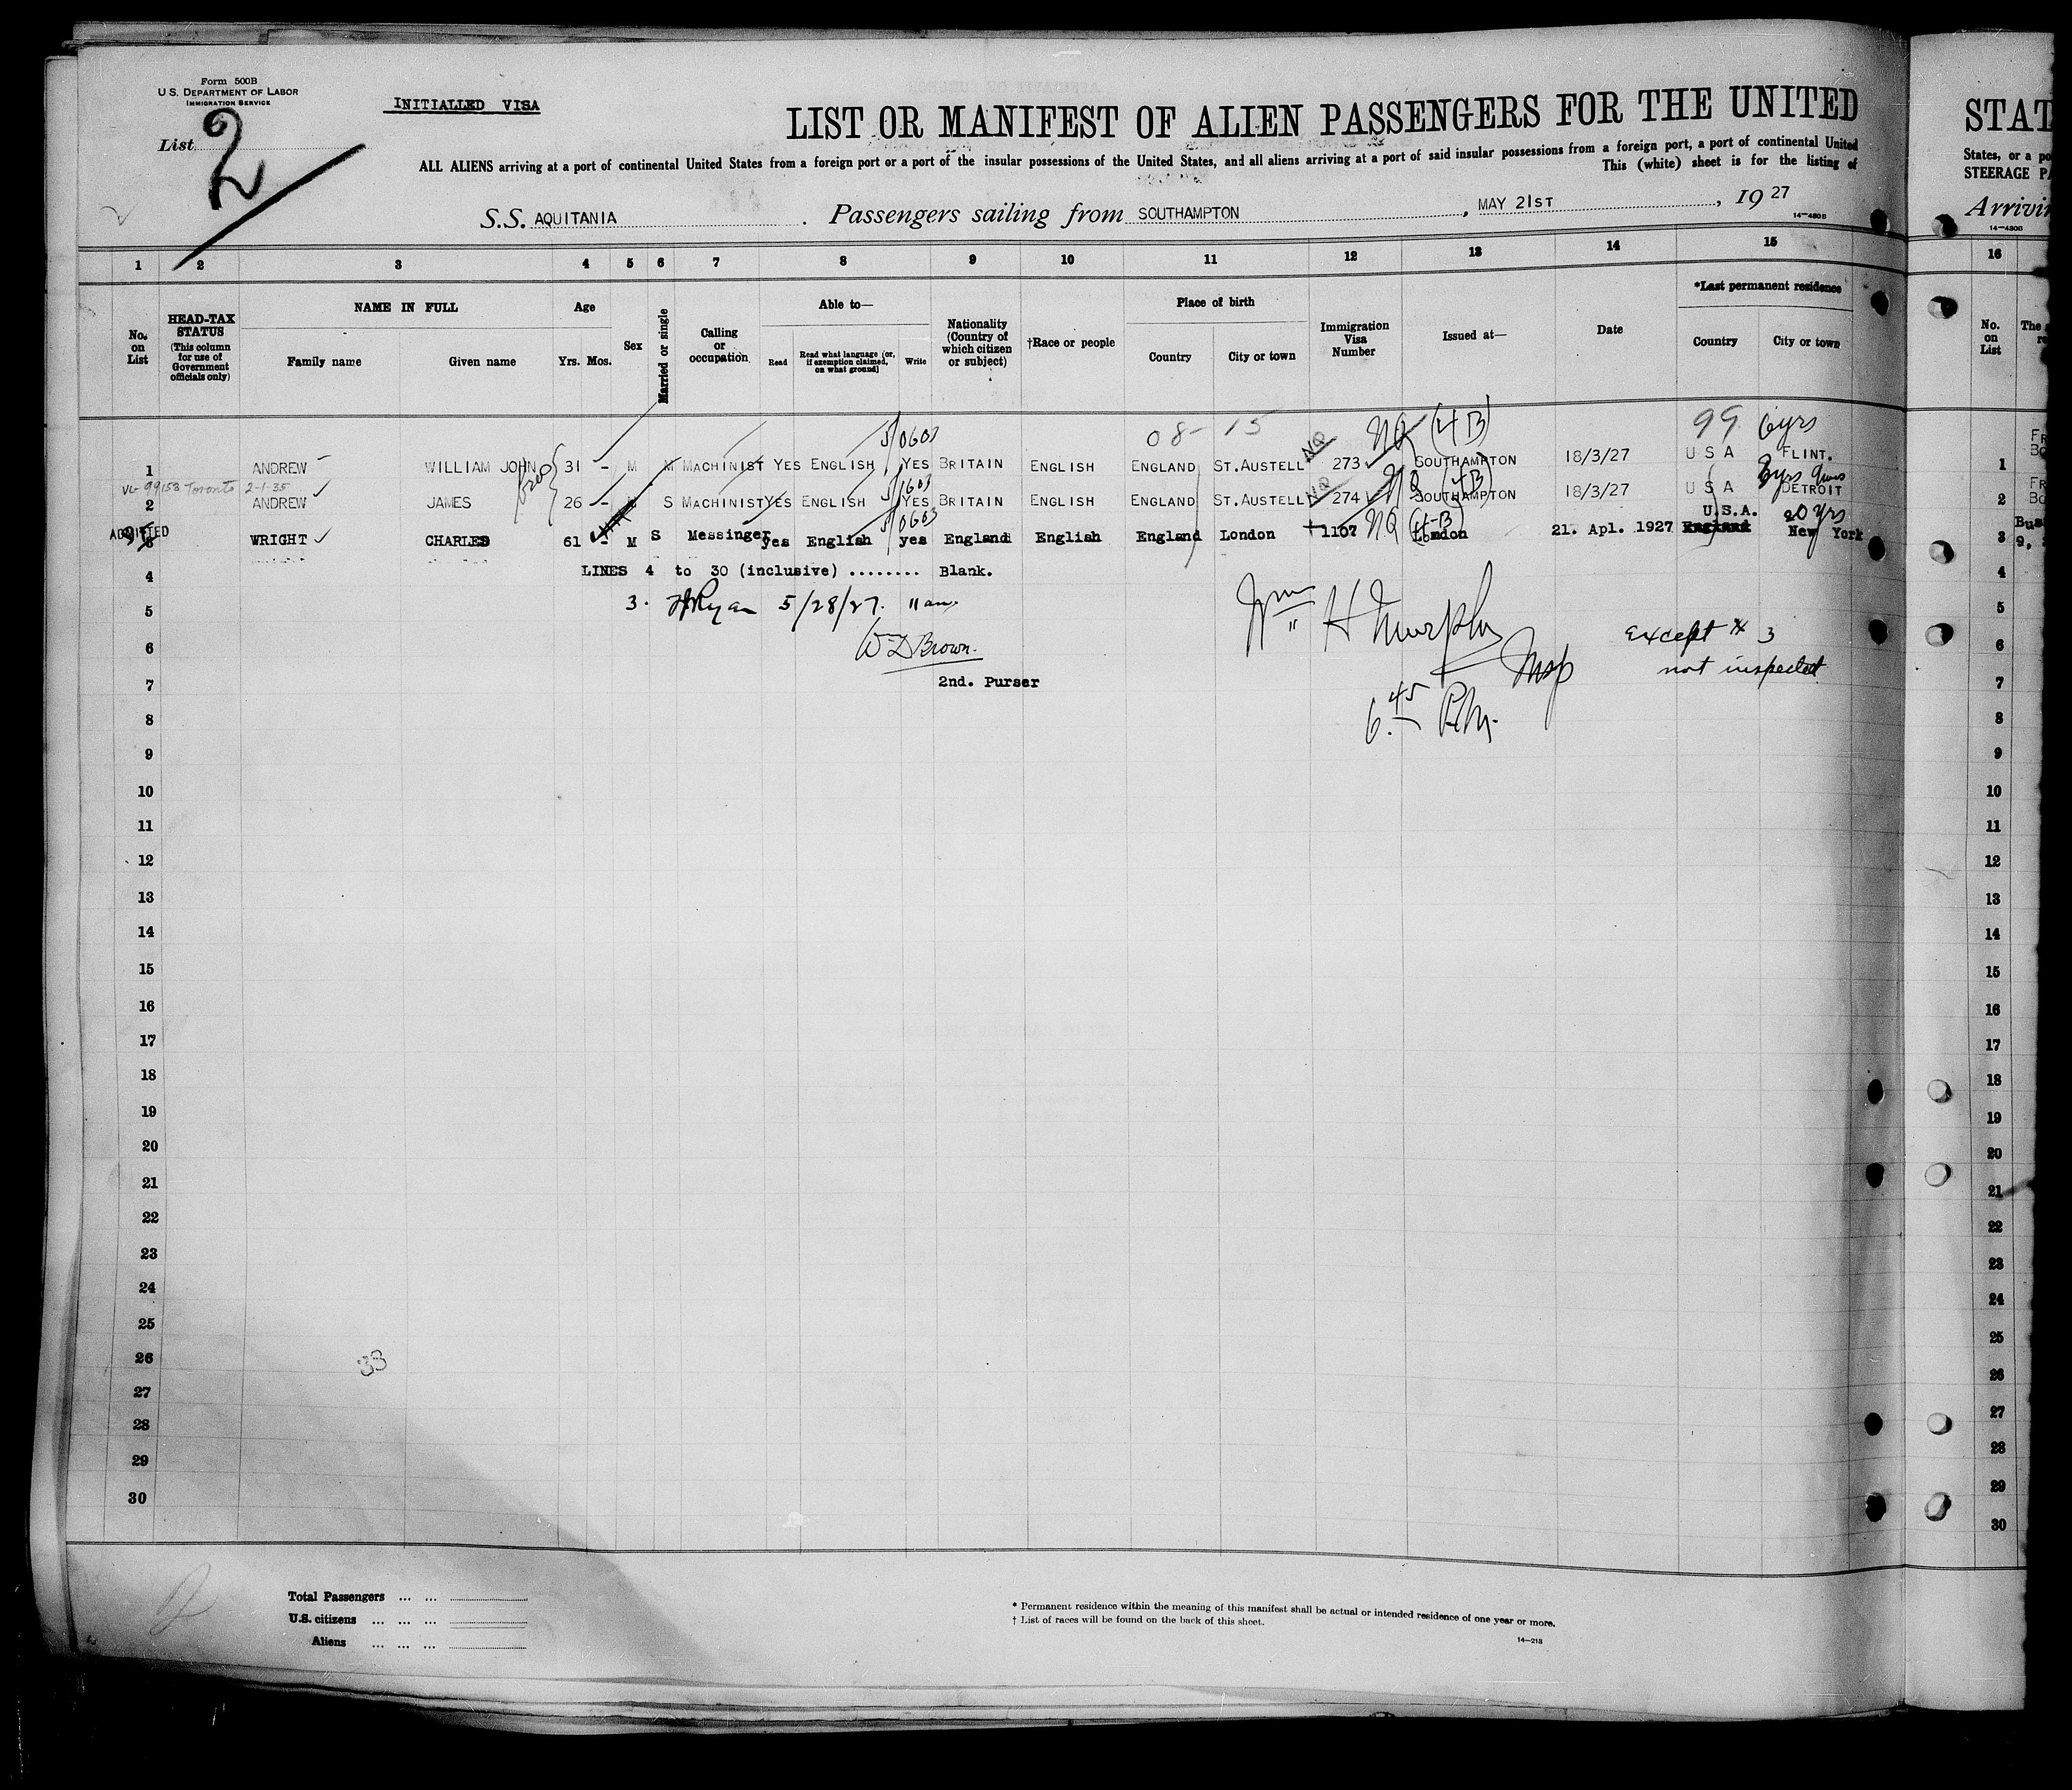 Form 500B
U. S. DEPARTMENT OF LABOR
IMMIGRATION SERVICE
INITIALLED VISA
List 2
LIST OR MANIFEST OF ALIEN PASSENGERS FOR THE UNITED
STAT
ALL ALIENS arriving at a port of continental United States from a foreign port or a port of the insular possessions of the United States, and all aliens arriving at a port of said insular possessions from a foreign port, a port of continental United
States, or a po
This (white) sheet is for the listing of
STEERAGE PA
S.S. AQUITANIA . Passengers sailing from SOUTHAMPTON , MAY 21ST , 19 27
Arrivin
14—480B
14—480B
1 2 3 4 5 6 7 8 9 10 11 12 13 14 15 16
No. on List
HEAD-TAX STATUS (This column for use of Government officials only)
NAME IN FULL
Family name
Given name
Age
Yrs. Mos.
Sex
Married or single
Calling or occupation
Able to—
Read
Read what language [or, if exemption claimed, on what ground]
Write
Nationality (Country of which citizen or subject)
†Race or people
Place of birth
Country
City or town
Immigration Visa Number
Issued at—
Date
*Last permanent residence
Country
City or town
No. on List
The
08- 15 NQ (4B) 99 6yrs
1 ANDREW WILLIAM JOHN 31 - M M MACHINIST YES ENGLISH YES BRITAIN ENGLISH ENGLAND ST.AUSTELL NQ 273 SOUTHAMPTON 18/3/27 U S A FLINT. 1
VL- 99153 Toronto 2-1-35
NQ (4B)
2 ANDREW JAMES 26 - S MACHINIST YES ENGLISH YES BRITAIN ENGLISH ENGLAND ST.AUSTELL NQ 274 SOUTHAMPTON 18/3/27 U S A DETROIT 2
ADMITTED
U.S.A. 20 yrs
3 WRIGHT CHARLES 61 - M S Messinger yes English yes England English England London 1107 NQ (4-B) London 21. Apl. 1927 England New York 3
4 LINES 4 to 30 (inclusive) ........ Blank. 4
5 3. HRyan 5/28/27. 11 am 5
Wm H Murphy
Insp
6.45 P.M.
except # 3
not inspected
6 W Brown. 6
7 2nd. Purser 7
8 8
9 9
10 10
11 11
12 12
13 13
14 14
15 15
16 16
17 17
18 18
19 19
20 20
21 21
22 22
23 23
24 24
25 25
26 33 26
27 27
28 28
29 29
30 30
Total Passengers ... ...
U.S. citizens ... ... ...
Aliens ... ... ...
* Permanent residence within the meaning of this manifest shall be actual or intended residence of one year or more.
† List of races will be found on the back of this sheet.
14—218